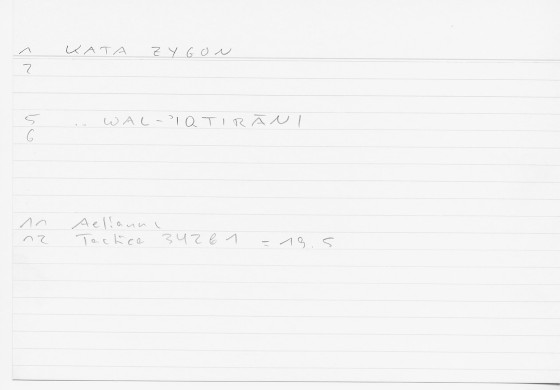 1 KATA ZYGON
2
5 .. WAL-'IQTIRĀNI
6
11 Aelianus
12 Tactica 342 61 = 19.5